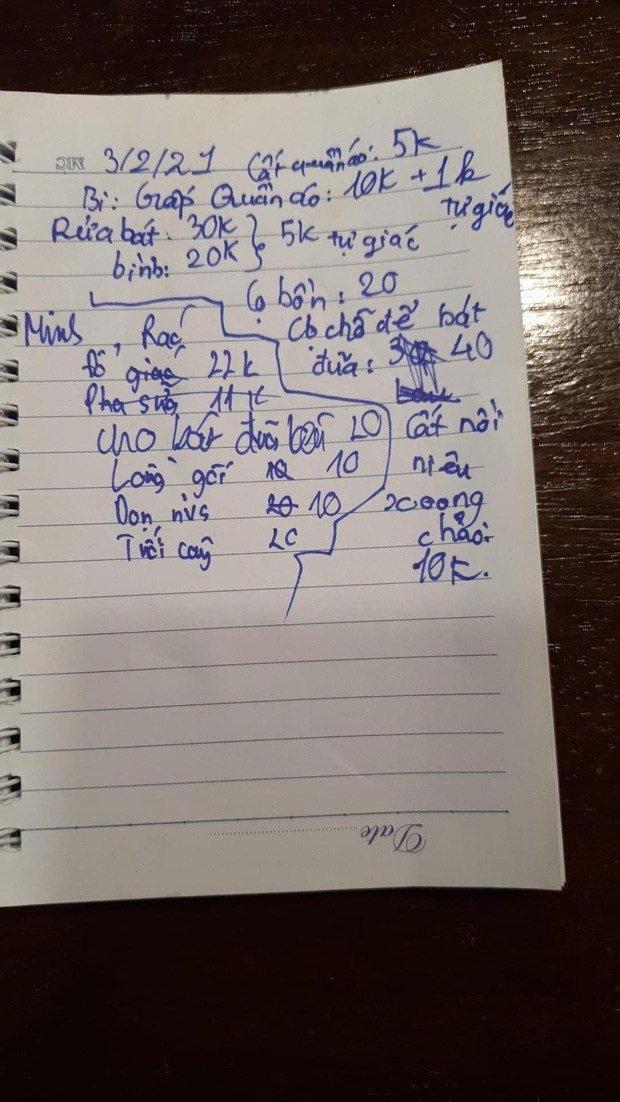 3/2/21 Cất quần áo: 5k
Bi: Gấp Quần áo: 10k + 1k
tự giác
Rửa bát: 30k } 5k tự giác
bình: 20k
Cọ bồn: 20
Minh
Cọ chỗ để bát
đũa: 40
Đổ Rác 22k
Pha sữa 11k
cho bát đũa bẩn 20
Lồng gối 10
Dọn nvs 10
Tưới cây 20
Cất nồi
niêu
xoong
chảo:
10k.
MC
Date